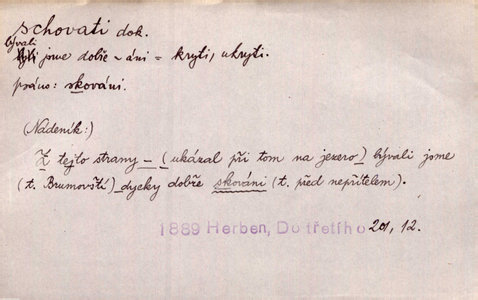 schovati dok.
bývali
byli jsme dobře ~ áni = kryti, ukryti.
psáno: skováni.
(Nádeník:)
Z tejto strany – (ukázal při tom na jezero) bývali jsme
(t. Brumovští) dycky dobře skováni (t. před nepřítelem).
1889 Herben, Do třetího 201, 12.